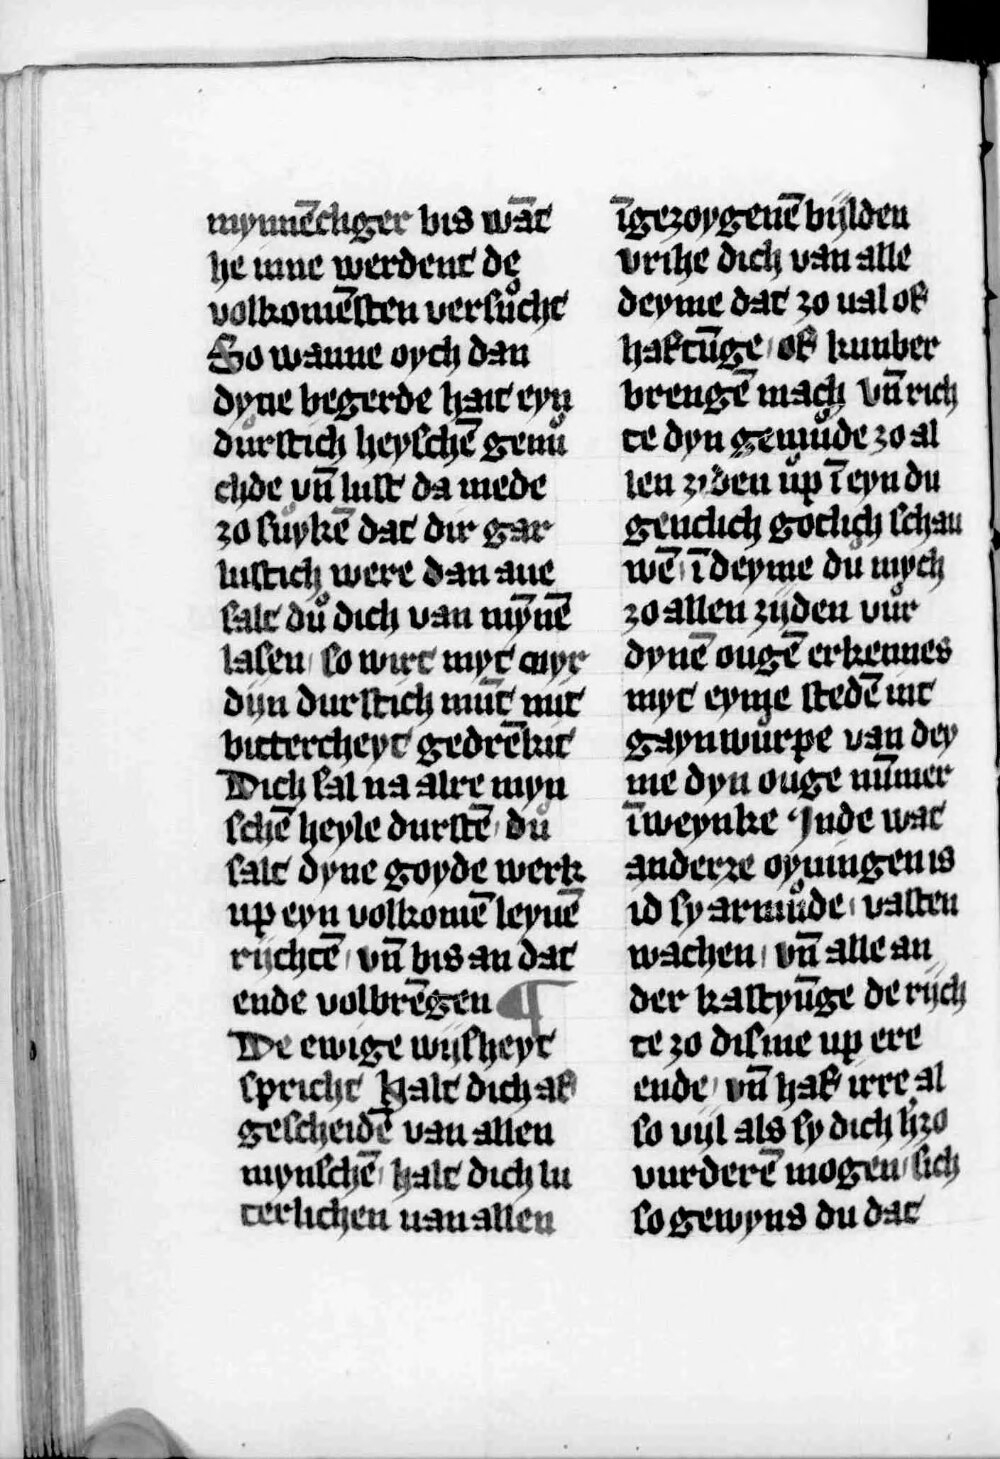 mynnēchger bis wāt
he inne werdent de
volkomēsten versůcht
So wanne oych dan
dyne begerde hait eyn
durstich heyschē genů
chde vn̄ lust da mede
zo sůykē dat dir gar
lustich were dan aue
salt dů dich van mȳnē
lasen / so wirt myt myr
dijn durstich mūt mit
bittercheyt gedrēkit
Dich sal na alre myn
schē heyle durstē / dů
salt dyne goyde werk
up eyn volkomē leynē
rijchtē / vn̄ bis an dat
ende volbrēgen ¶
De ewige wijsheyt
spricht Halt dich af
gescheidē van allen
mynschē / halt dich lu
terlichen uan allen
īgezoygenē bijlden
vrihe dich van alle
deyme dat zo ual of
haftūge / of kunber
brengē mach vn̄ rich
te dyn gemůde zo al
len ziden ůp ī eyn du
gentlich gotlich schau
wē / ī deyme du mych
zo allen zijden vůr
dynē ougē erkennes
myt eyme stedē int
gaynwůrpe van dey
me dyn ouge nūmer
īweynke Jnde wat
anderze oyningen is
id sy armůde / vasten
wachen / vn̄ alle an
der kastyūge de rijch
te zo disme up ere
ende / vn̄ haf irre al
so vijl als sy dich hzo
vurderē mogen / sich
so gewyns du dat